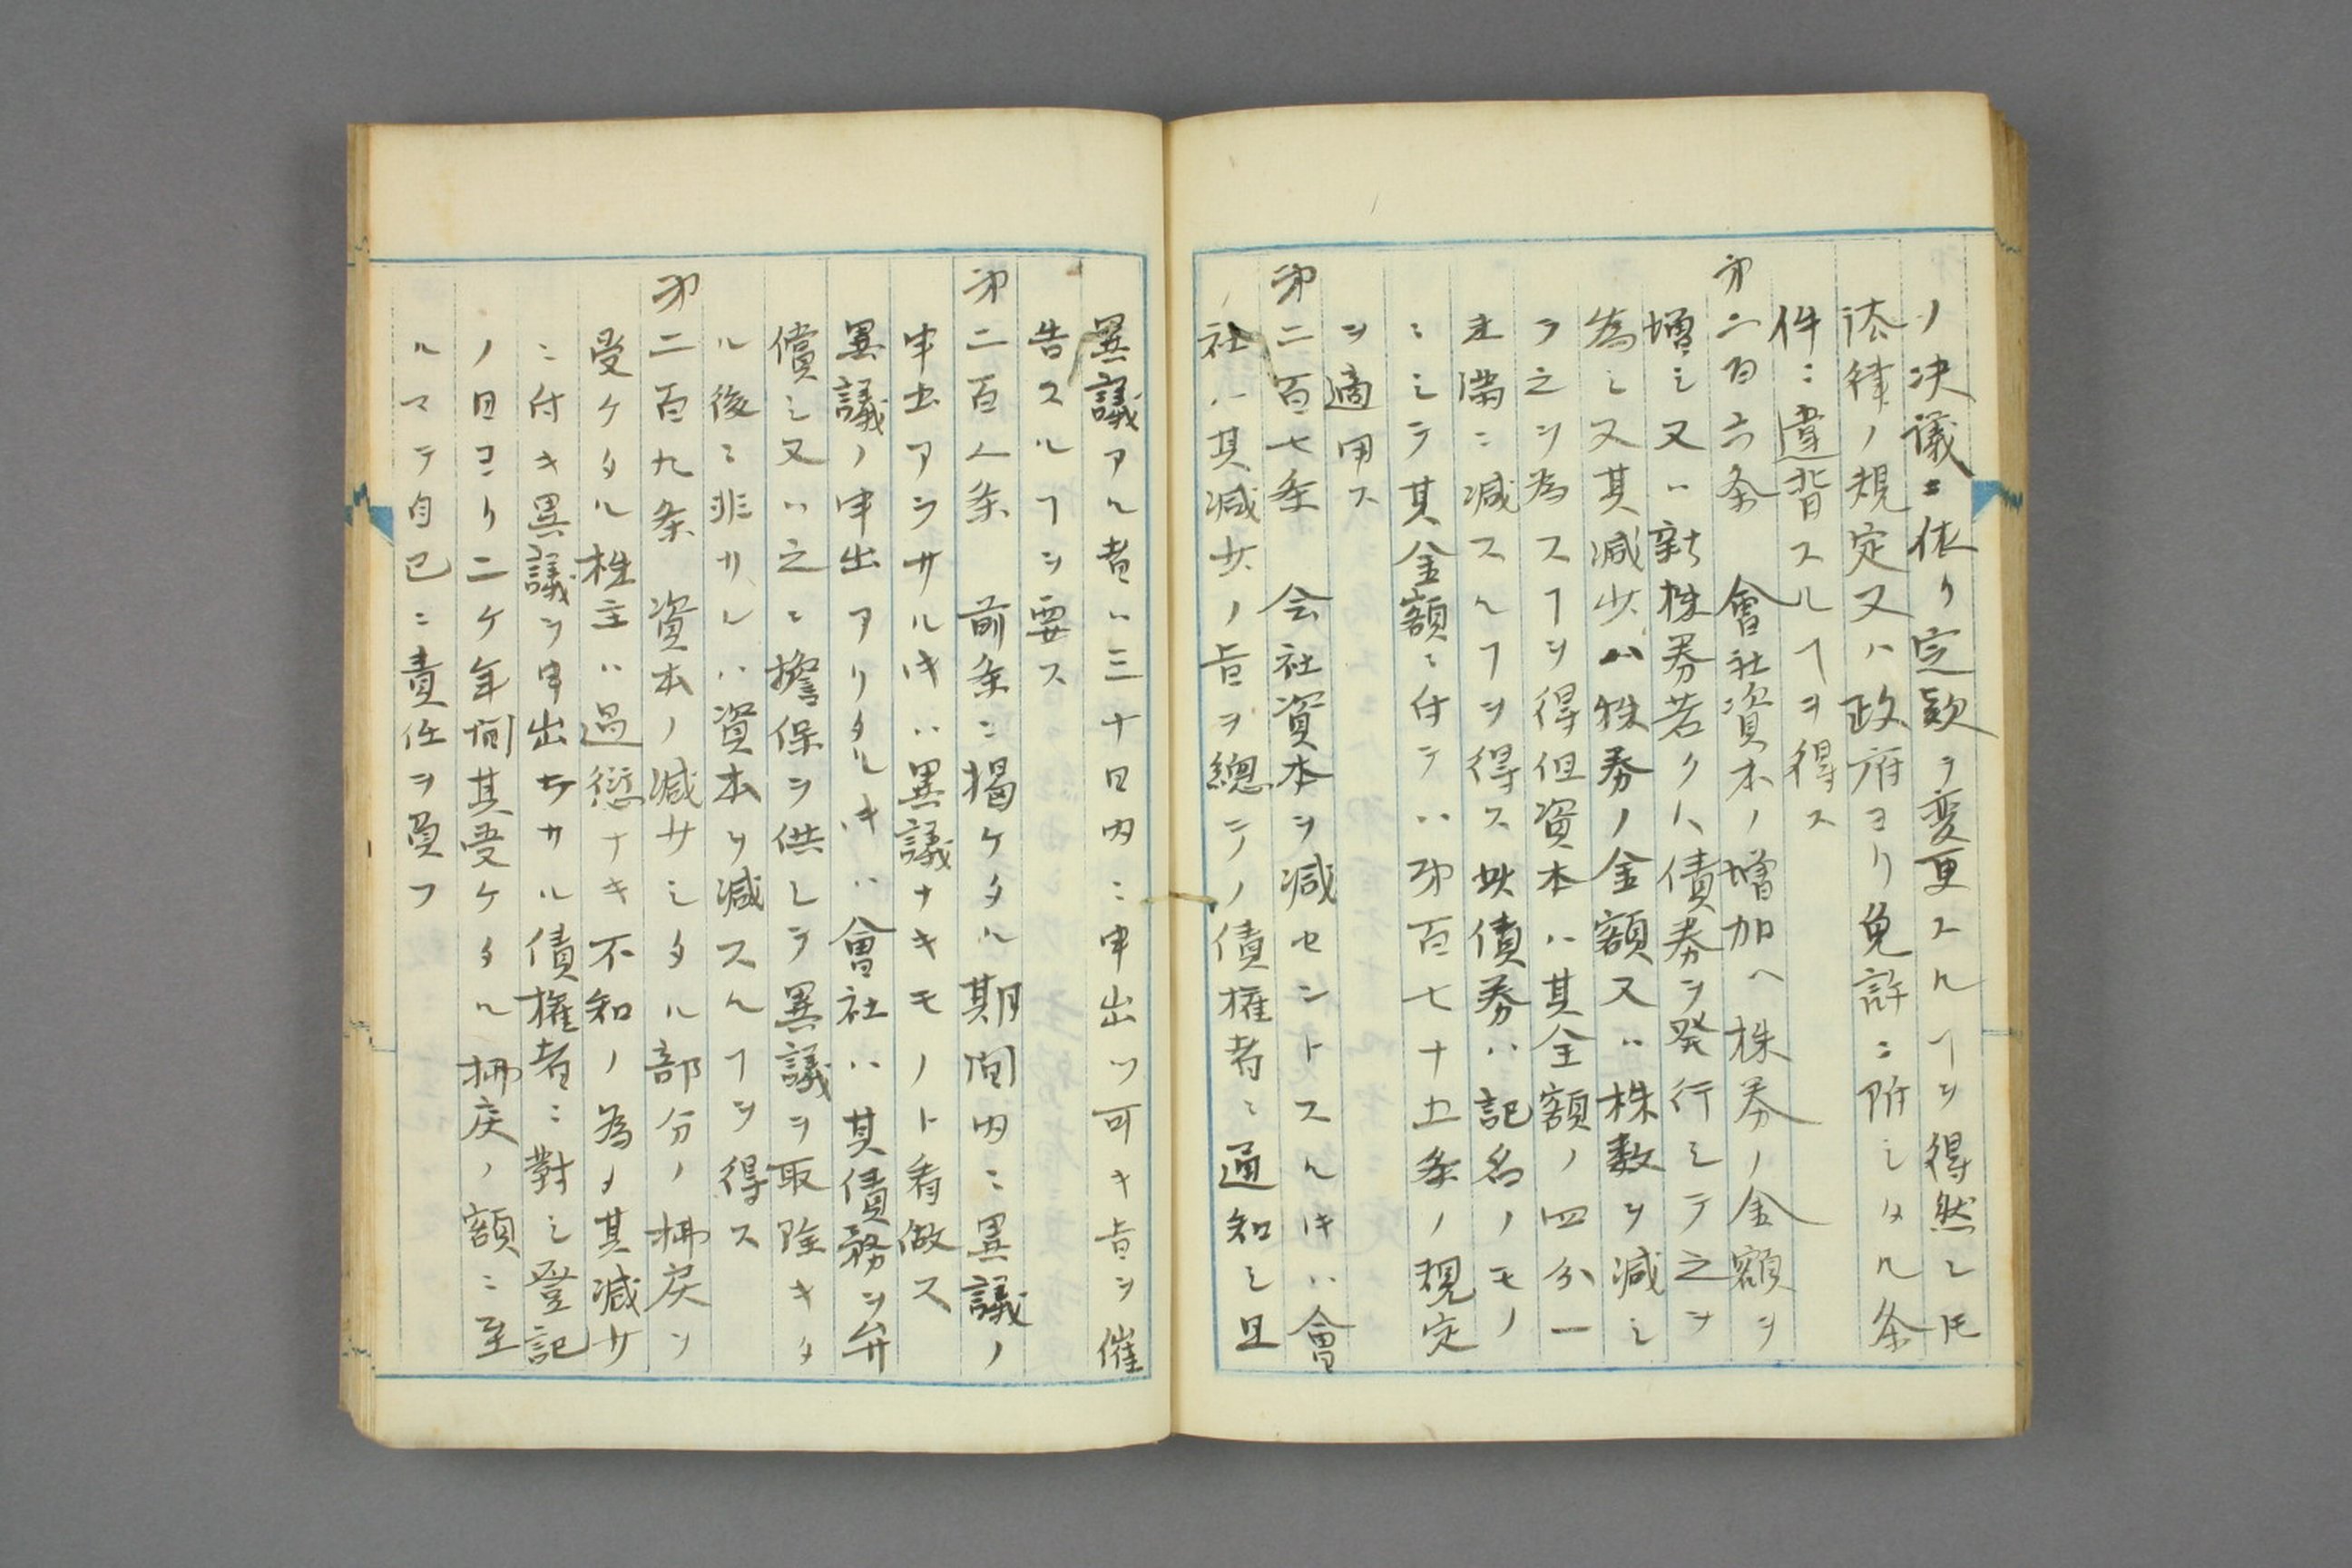 ノ決議ニ依リ定款ヲ変更スルヿヲ得然レ𪜈
法律ノ規定又ハ政府ヨリ免許ニ附シタル条
件ニ違背スルヿヲ得ス
㐧二百六条　會社資本ノ増加ヘ株券ノ金額ヲ
増シ又ハ新株券若クハ債券ヲ発行シテ之ヲ
為シ又其減少ハ株券ノ金額又ハ株数ヲ減シ
テ之ヲ為スヿヲ得但資本ハ其全額ノ四分一
未満ニ減スルヿヲ得ス此債券ハ記名ノモノ
ニシテ其金額ニ付テハ㐧百七十五条ノ規定
ヲ適用ス
㐧二百七条　会社資本ヲ減セントスル𪜈ハ會
社ハ其減少ノ旨ヲ總テノ債権者ニ通知シ且
異議アル者ハ三十日内ニ申出ツ可キ旨ヲ催
告スルヿヲ要ス
㐧二百八条　前条ニ掲ケタル期間内ニ異議ノ
申出アラサルキハ異議ナキモノト看做ス
異議ノ申出アリタルキハ會社ハ其債務ヲ弁
償シ又ハ之ニ擔保ヲ供シテ異議ヲ取除キタ
ル後ニ非サレハ資本ヲ減スルヿヲ得ス
㐧二百九条　資本ノ減少シタル部分ノ拂戻ヲ
受ケタル株主ハ過愆ナキ不知ノ為メ其減少
ニ付キ異議ヲ申出サル債権者ニ對シ登記
ノ日ヨリ二ケ年間其受ケタル拂戻ノ額ニ至
ルマテ自己ニ責任ヲ負フ